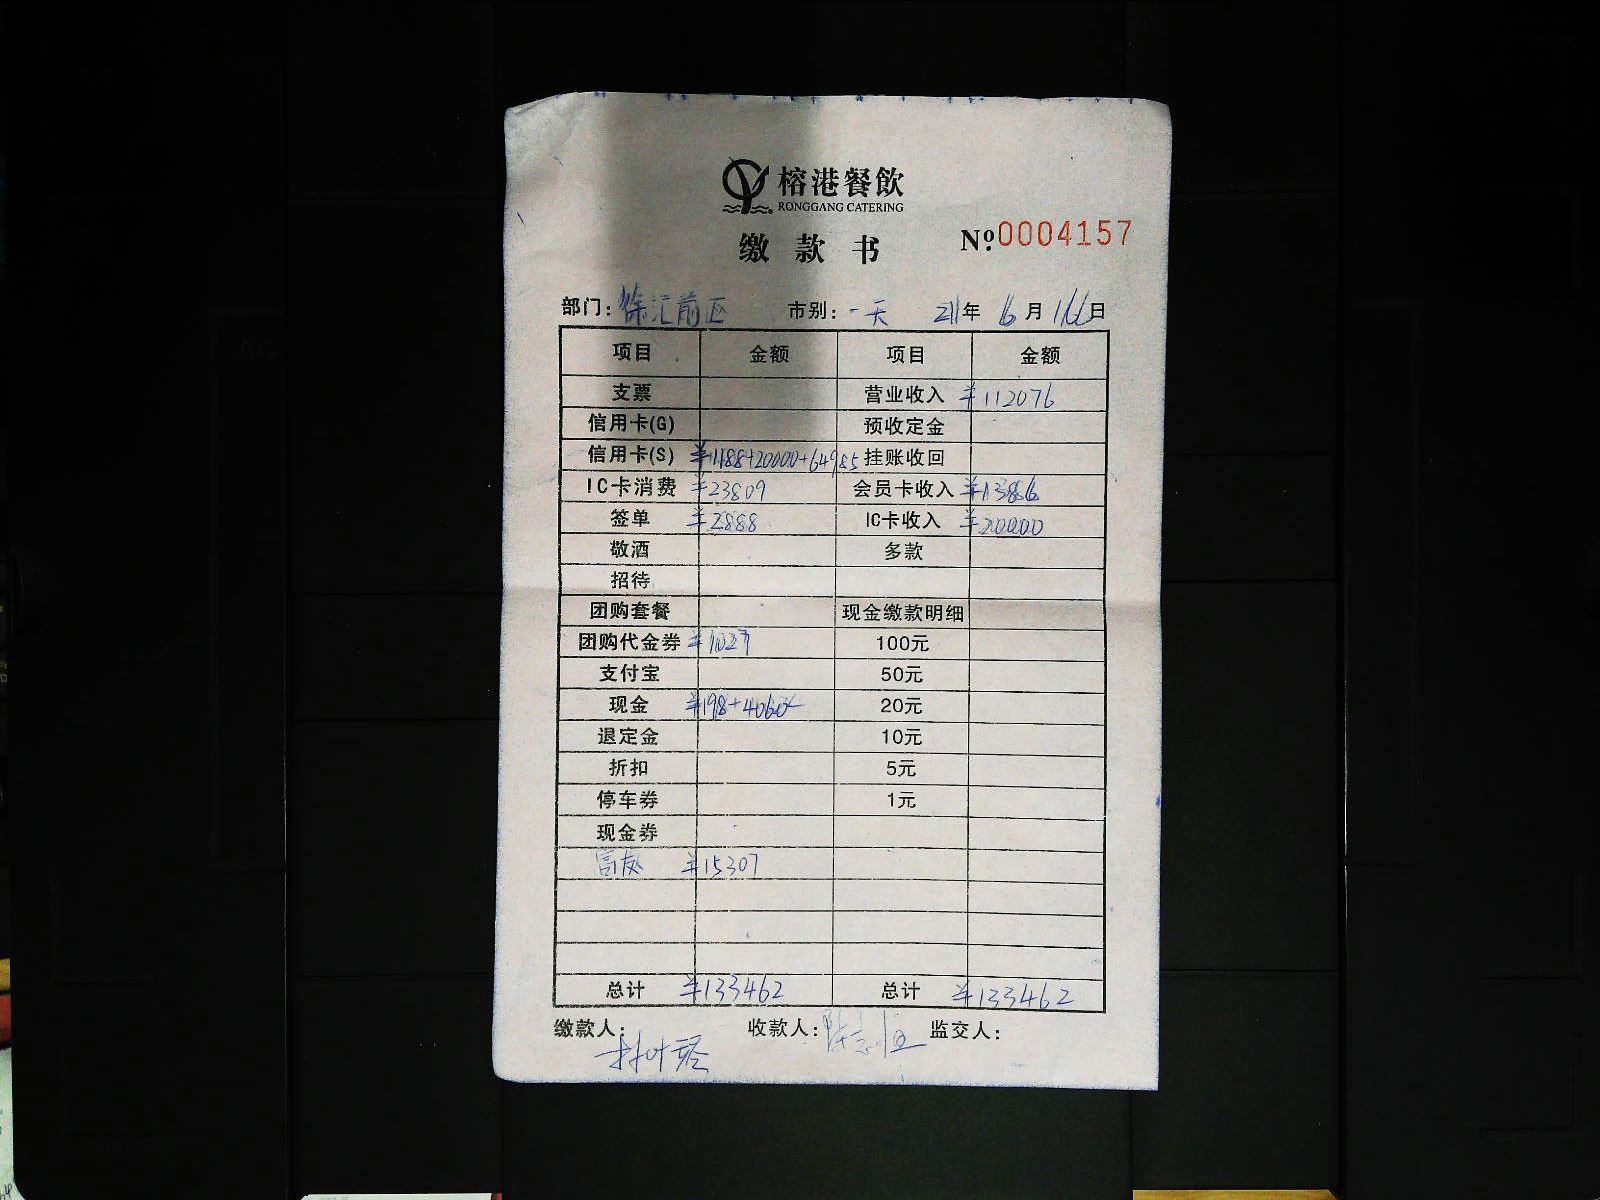 榕港餐飲
RONGGANG CATERING
缴款书 №0004157
部门:徐汇前区 市别:一天 21年 6月 16日
项目 金额 项目 金额
支票 营业收入 ¥112076
信用卡(G) 预收定金
信用卡(S) ¥1188+20000+64985 挂账收回
IC卡消费 ¥23809 会员卡收入 ¥1386
签单 ¥2888 IC卡收入 ¥20000
敬酒 多款
招待
团购套餐 现金缴款明细
团购代金券 ¥1027 100元
支付宝 50元
现金 ¥198+4060 20元
退定金 10元
折扣 5元
停车券 1元
现金券
富友 ¥15307
总计 ¥133462 总计 ¥133462
缴款人: 收款人: 监交人: